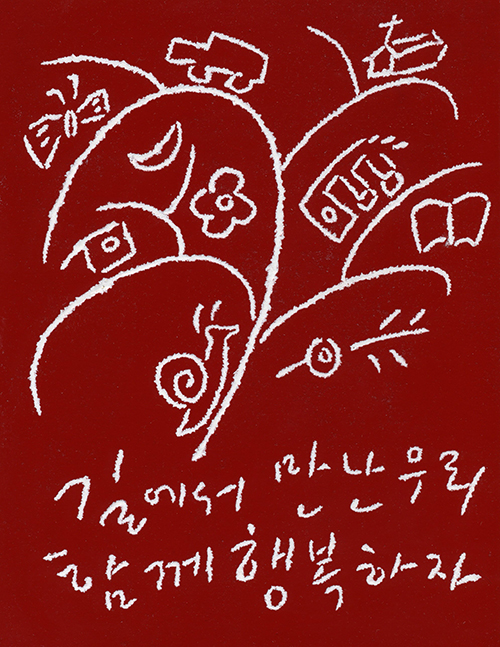 길에서 만난 우리
함께 행복하자